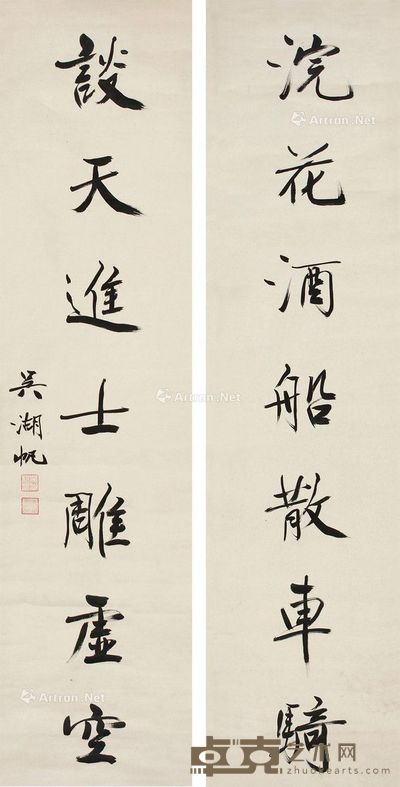 浣花酒船散車騎
談天進士雕虛空
吳湖帆
Artron.Net
Artron.Net
Artron.Net
卓克艺术网
zhuokearts.com